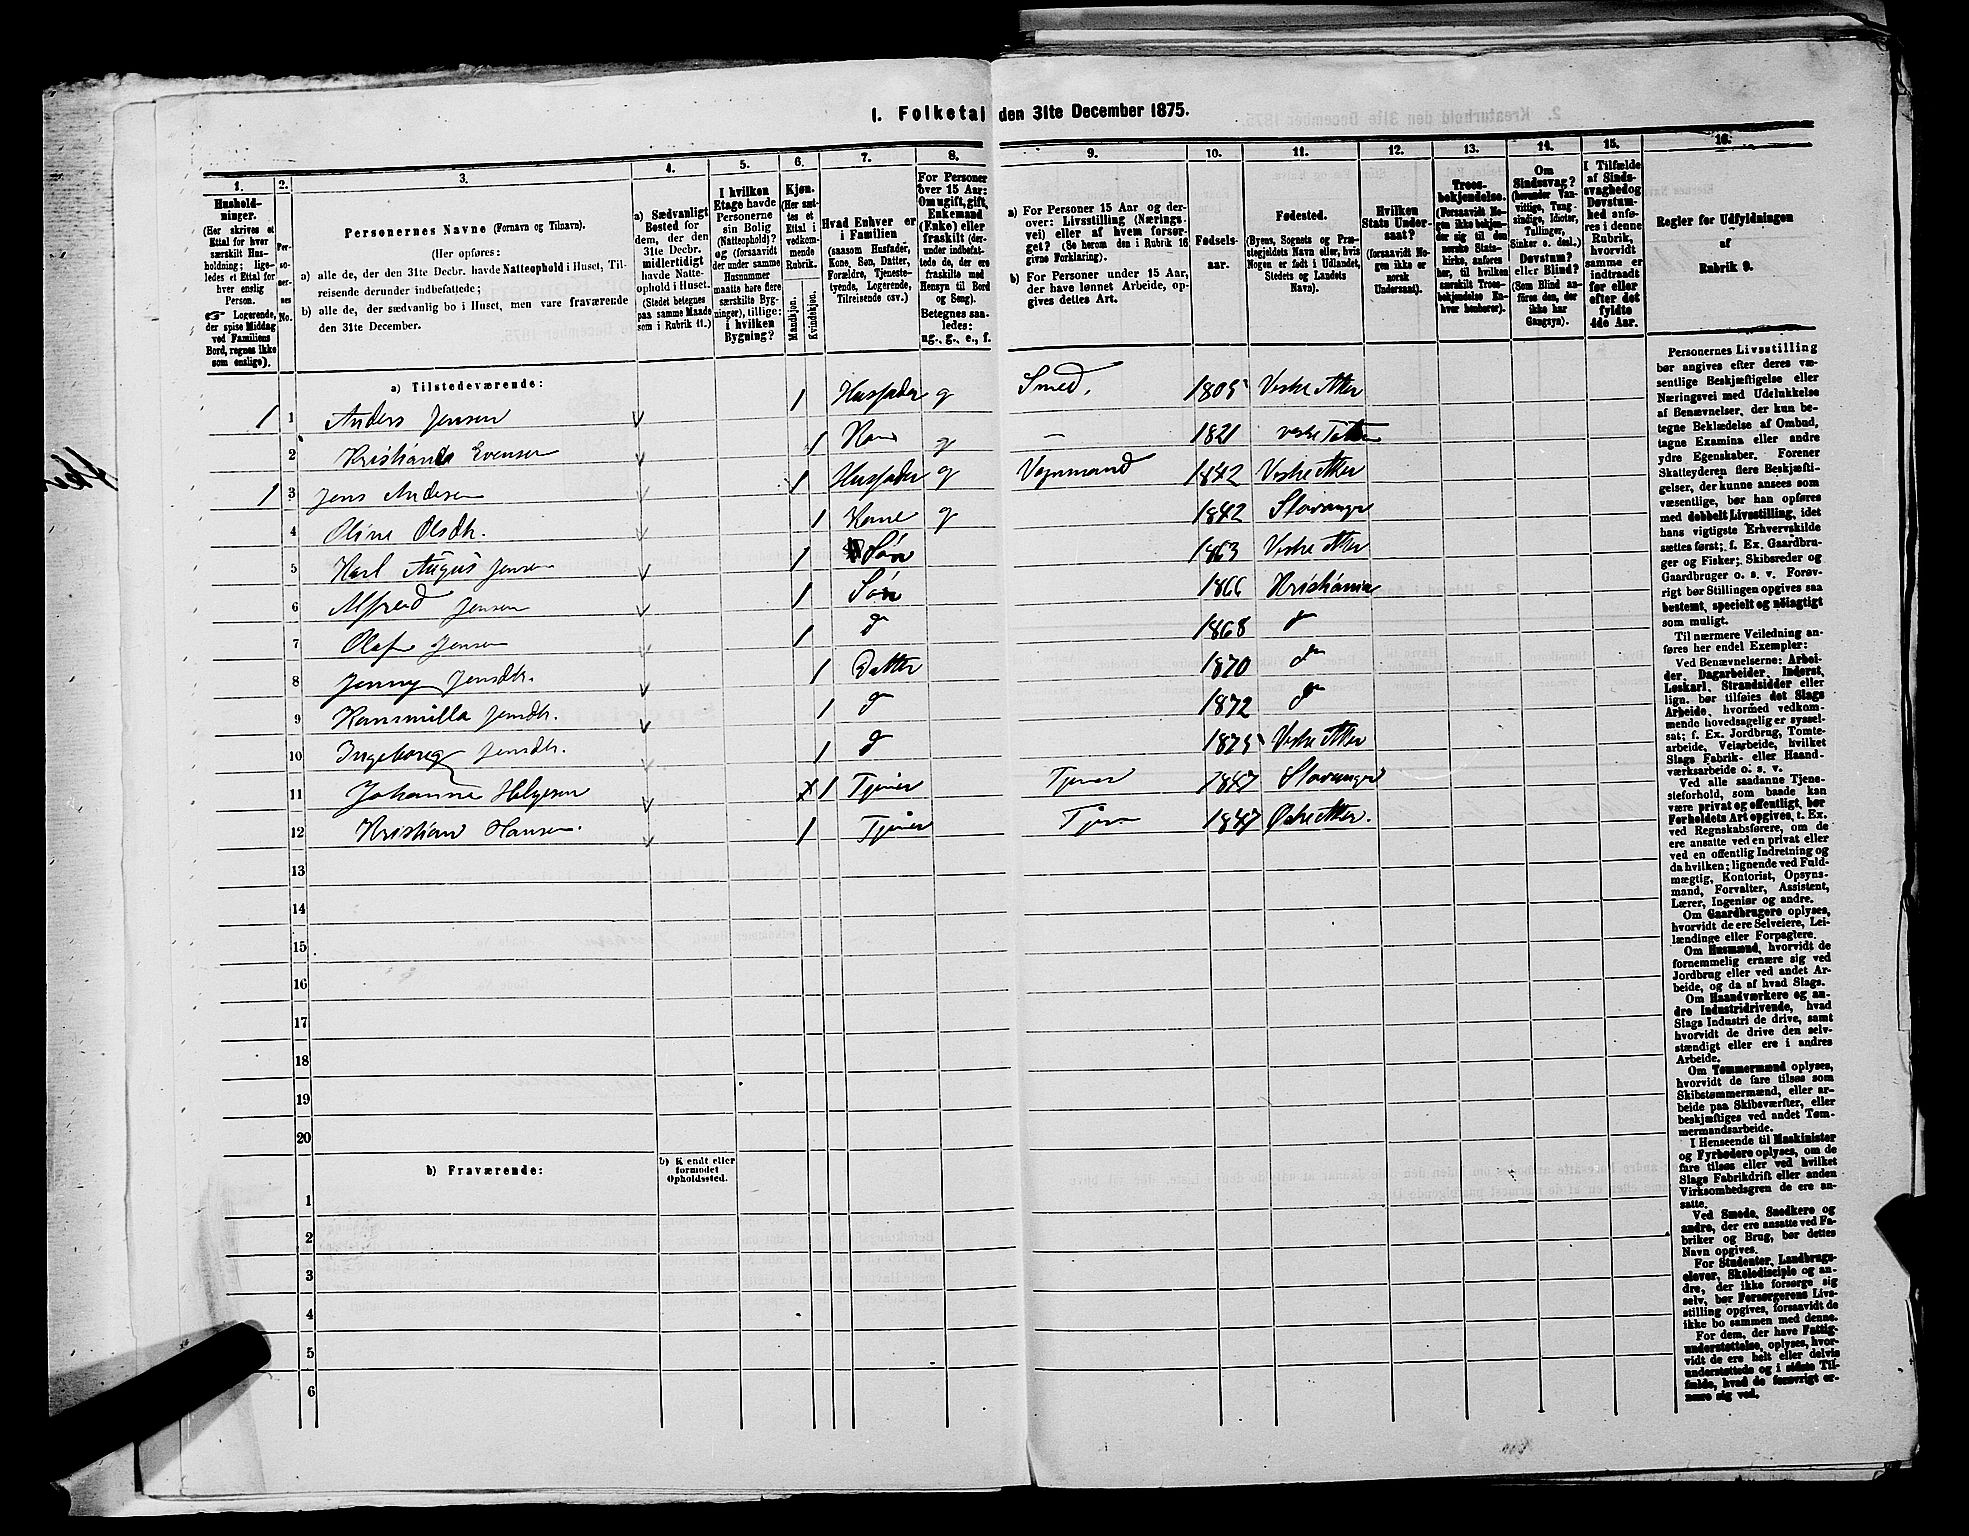 1. Folketal den 31te December 1875.
1.
Husholdninger.
(Her skrives et Ettal for hver særskilt Husholdning; ligeledes et Ettal for hver enslig Person.
Logerende, der spise Middag ved Familiens Bord, regnes ikke som enslige).
2.
Personernes No.
3.
Personernes Navne (Fornavn og Tilnavn).
(Her opføres:
a) alle de, der den 31te Decbr. havde Natteophold i Huset, Tilreisende derunder indbefattede;
b) alle de, der sædvanlig bo i Huset, men vare fraværende den 31te December.
4.
a) Sædvanligt Bosted for dem, der den 31te Decbr. midlertidigt havde Natteophold i Huset.
(Stedet betegnes paa samme Maade som i Rubrik 11.)
5.
I hvilken Etage havde Personerne sin Bolig (Natteophold)? og (forsaavidt der under samme Husnummer maatte høre flere særskilte Bygninger), tillige: i hvilken Bygning?
6.
Kjøn.
(Her sættes et Ettal i vedkommende Rubrik.
Mandkjøn.
Kvindekjøn.
7.
Hvad Enhver er i Familien
(saasom Husfader, Kone, Søn, Datter, Forældre, Tjenestetyende, Logerende, Tilreisende osv.)
8.
For Personer over 15 Aar: Om ugift, gift, Enkemand (Enke) eller fraskilt (derunder indbefattede de, der ere fraskilte med Hensyn til Bord og Seng).
Betegnes saaledes: ug., g., e., f.
9.
a) For Personer 15 Aar og derover: Livsstilling (Næringsvei) eller af hvem forsørget? (Se herom den i Rubrik 16 givne Forklaring).
b) For Personer under 15 Aar, der have lønnet Arbeide, opgives dettes Art.
10.
Fødselsaar.
11.
Fødested.
(Byens, Sognets og Præstegjeldets Navn eller, hvis Nogen er født i Udlandet, Stedets og Landets Navn).
12.
Hvilken Stats Undersaat?
(forsaavidt Nogen ikke er norsk Undersaat).
13.
Troesbekjendelse.
(Forsaavidt Nogen ikke bekjender sig til den norske Statskirke, anføres her, til hvilken særskilt Troesbekjendelse Enhver henhører).
14.
Om Sindssvag? (herunder Vanvittige, Tungsindige, Idioter, Tullinger, Sinker o. desl.)
Døvstum? eller Blind?
(Som Blind anføres den, der ikke har Gangsyn).
15.
I Tilfælde af Sindssvaghed og Døvstumhed anføres i denne Rubrik, hvorvidt samme er indtraadt før eller efter det fyldte 4de Aar.
16.
Regler for Udfyldningen af Rubrik 9.
a) Tilstedeværende:
1 1 Anders Jensen 1 Husfader g Smed. 1805 Vestre Aker
2 Kristiane Evensen 1 g — 1821
1 3 Jens Andersen 1 Husfader g Vognmand 1842 Vestre Aker
4 Oline Olsdtr. 1 Kone g 1842 Stavanger
5 Karl August Jensen 1 Søn 1863 Vestre Aker
6 Alfred Jensen 1 Søn 1866 Kristiania
7 Olaf Jensen 1 d 1868 d
8 Jenny Jensdtr. 1 Datter 1870 d
9 Hansmilla Jensdtr. 1 d 1872 d
10 Ingeborg Jensdtr. 1 d 1875 Vestre Aker
11 Johanne Helgesen 1 Tjener Tjener 1847 Stavanger
12 Kristian Hansen. 1 Tjener 1847 Østre Aker.
13
14
15
16
17
18
19
20
b) Fraværende:
b) Kjendt eller formodet Opholdssted.
1
2
3
4
5
6
Personernes Livsstilling
bør angives efter deres væ-
sentlige Beskjæftigelse eller
Næringsvei med Udelukkelse
af Benævnelser, der kun be-
tegne Beklædelse af Ombud,
tagne Examina eller andre
ydre Egenskaber. Forener
Skatteyderen flere Beskjæfti-
gelser, der kunne ansees som
væsentlige, bør han opføres
med dobbelt Livsstilling, idet
hans vigtigste Erhvervskilde
sættes først; f. Ex. Gaardbru-
ger og Fisker; Skibsreder og
Gaardbruger o. s. v. Forøv-
rigt bør Stillingen opgives saa
bestemt, specielt og nøiagtigt
som muligt.
Til nærmere Veiledning an-
føres her endel Exempler:
Ved Benævnelserne: Arbei-
der, Dagarbeider, Inderst,
Løskarl, Strandsidder eller
lign. bør tilføies det Slags
Arbeide, hvormed vedkom-
mende hovedsagelig er syssel-
sat; f. Ex. Jordbrug, Tomte-
arbeide, Veiarbeide, hvilket
Slags Fabrik- eller Haand-
værksarbeide o. s. v.
Ved alle saadanne Tjene-
steforhold, som baade kan
være privat og offentligt, bør
Forholdets Art opgives, t. Ex.
ved Regnskabsførere, om de
ere ansatte ved en privat eller
ved en offentlig Indretning og
da hvilken; lignende ved Fuld-
mægtig, Kontorist, Opsyns-
mand, Forvalter, Assistent,
Lærer, Ingeniør og andre.
Om Gaardbrugere oplyses,
hvorvidt de ere Selveiere, Lei-
lændinge eller Forpagtere.
Om Husmænd, hvorvidt de
fornemmelig ernære sig ved
Jordbrug eller ved andet Ar-
beide, og da af hvad Slags.
Om Haandværkere og an-
dre Industridrivende, hvad
Slags Industri de drive, samt
hvorvidt de drive den selv-
stændigt eller ere i andres
Arbeide.
Om Tømmermænd oplyses,
hvorvidt de fare tilsøs som
Skibstømmermænd, eller ar-
beide paa Skibsværfter, eller
beskjæftiges ved andet Tøm-
mermandsarbeide.
I Henseende til Maskinister
og Fyrbødere oplyses, om de
fare tilsøs eller ved hvilket
Slags Fabrikdrift eller anden
Virksomhedsgren de ere an-
satte.
Ved Smede, Snedkere og
andre, der ere ansatte ved Fa-
briker og Brug, bør dettes
Navn opgives.
For Studenter, Landbrugs-
elever, Skoledisciple og an-
dre, der ikke forsørge sig
selv, bør Forsørgerens Livs-
stilling opgives, forsaavidt de
ikke bo sammen med denne.
For dem, der have Fattig-
understøttelse, oplyses, hvor-
vidt de ere helt eller delvis
understøttede og i sidste Til-
fælde, hvad de forøvrigt er-
nære sig ved.